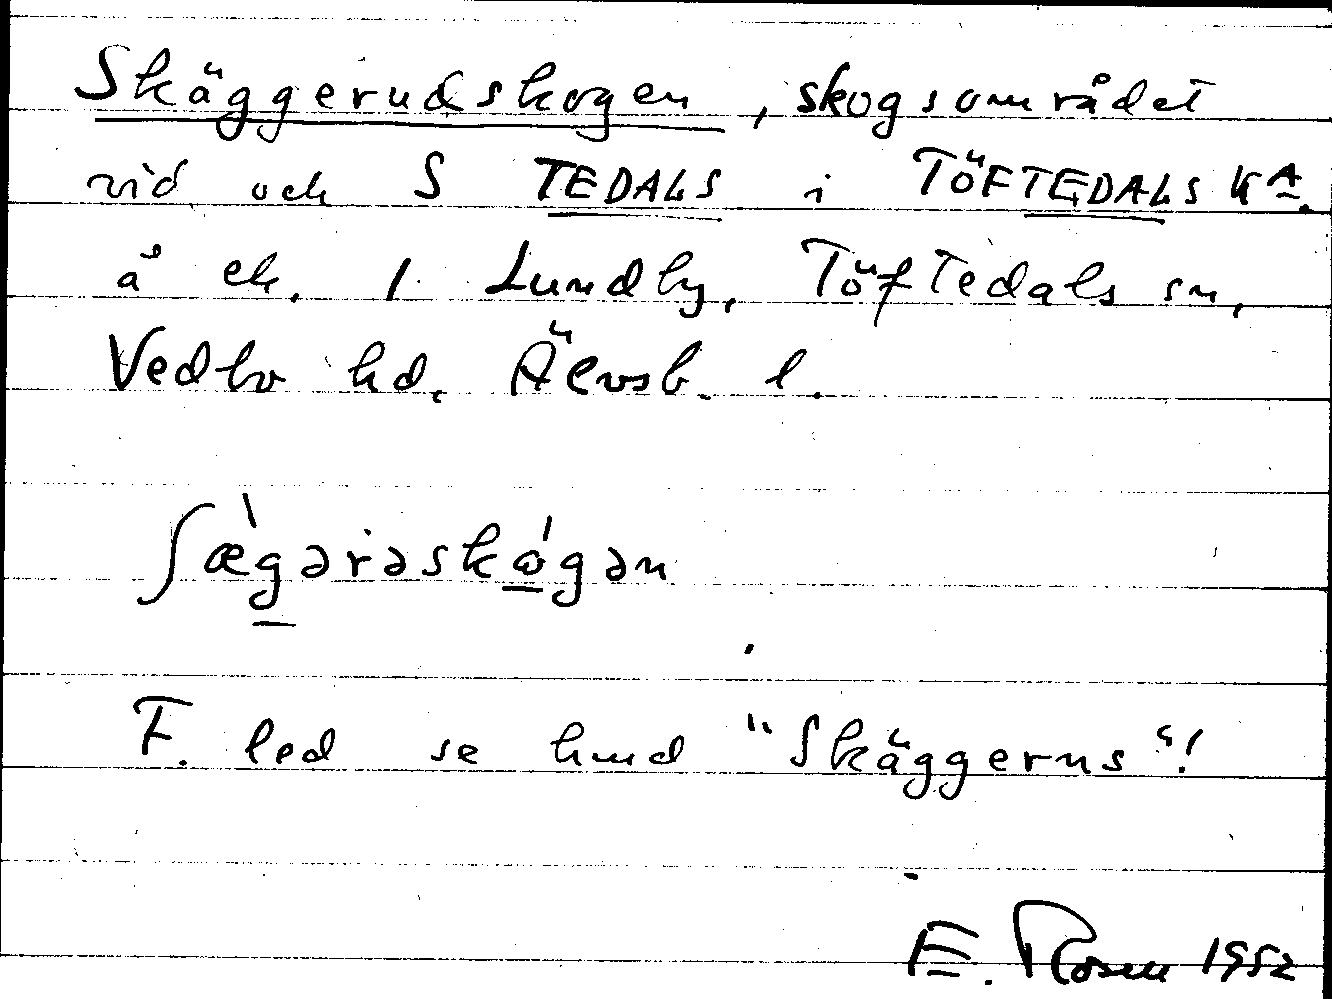 Skäggerudskogen, skogsområdet
vid och S TEDALS i TÖFTEDALS KA.
å ek. 1 Lundby, Töftedals sn,
Vedbo hd. Älvsb. l.
ʃæ̀gərəskógən
F. led se hmd "Skäggerns"!
E. Rosen 1952